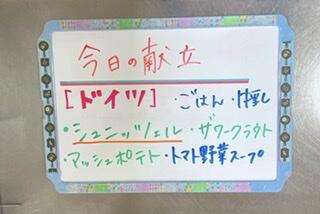 今日の献立
[ドイツ] ・ごはん ・味噌し
・シュニッツェル ・ザワークラウト
・マッシュポテト ・トマト野菜スープ